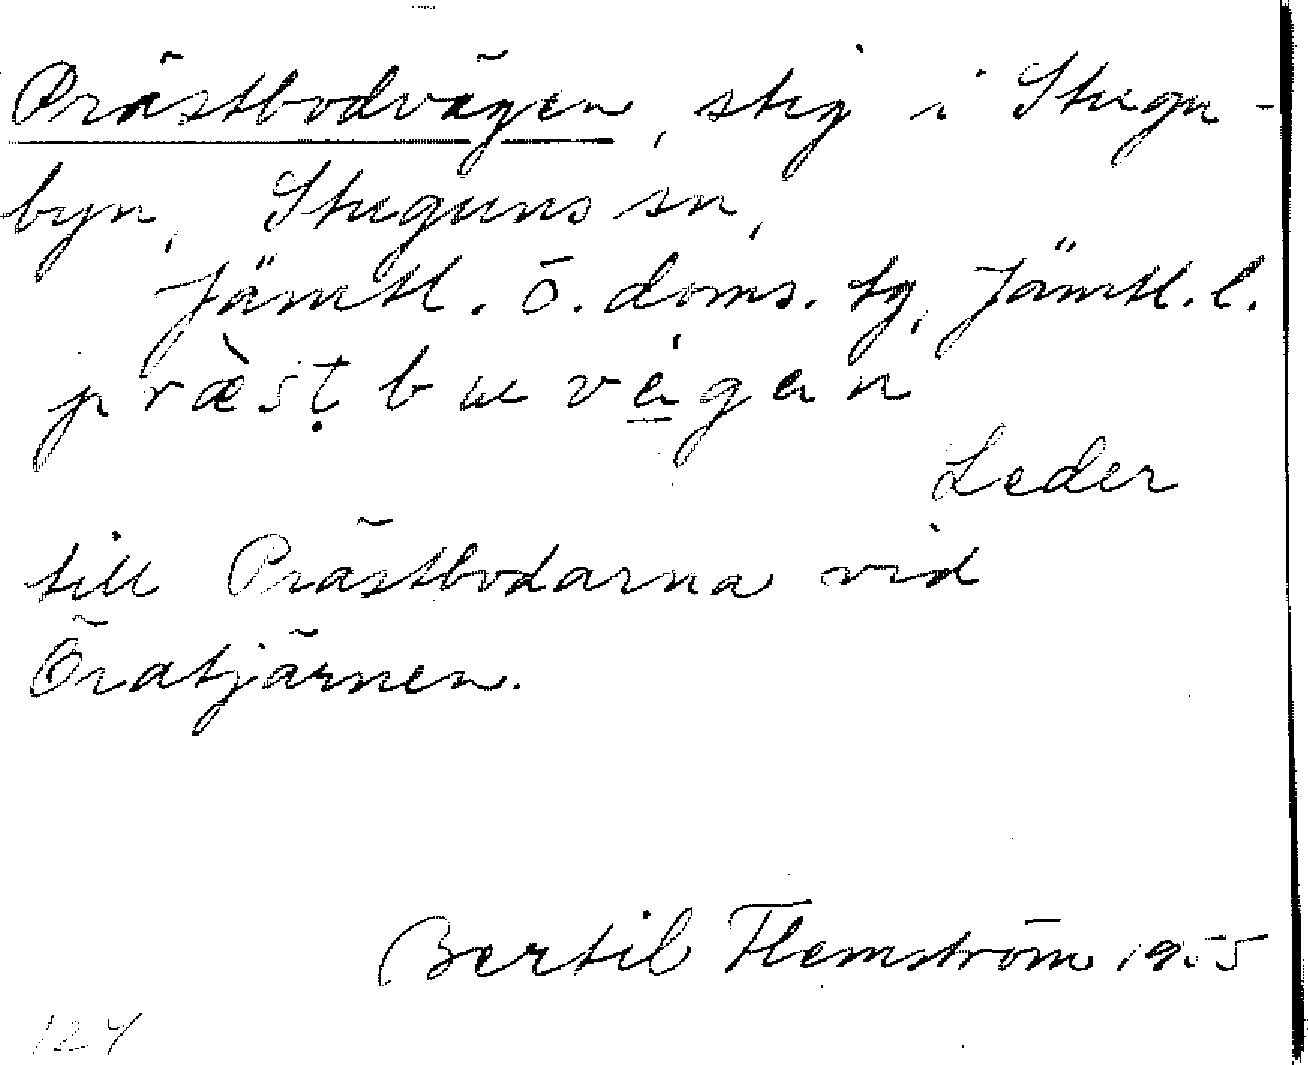 Prästbodvägen, stig i Stugu-
byn, Stuguns sn,
Jämtl. ö. doms. tg, Jämtl. l.
præ̀sṭbuvé̠gan
Leder
till Prästbodarna vid
Öratjärnen.
Bertil Flemström 1955
124